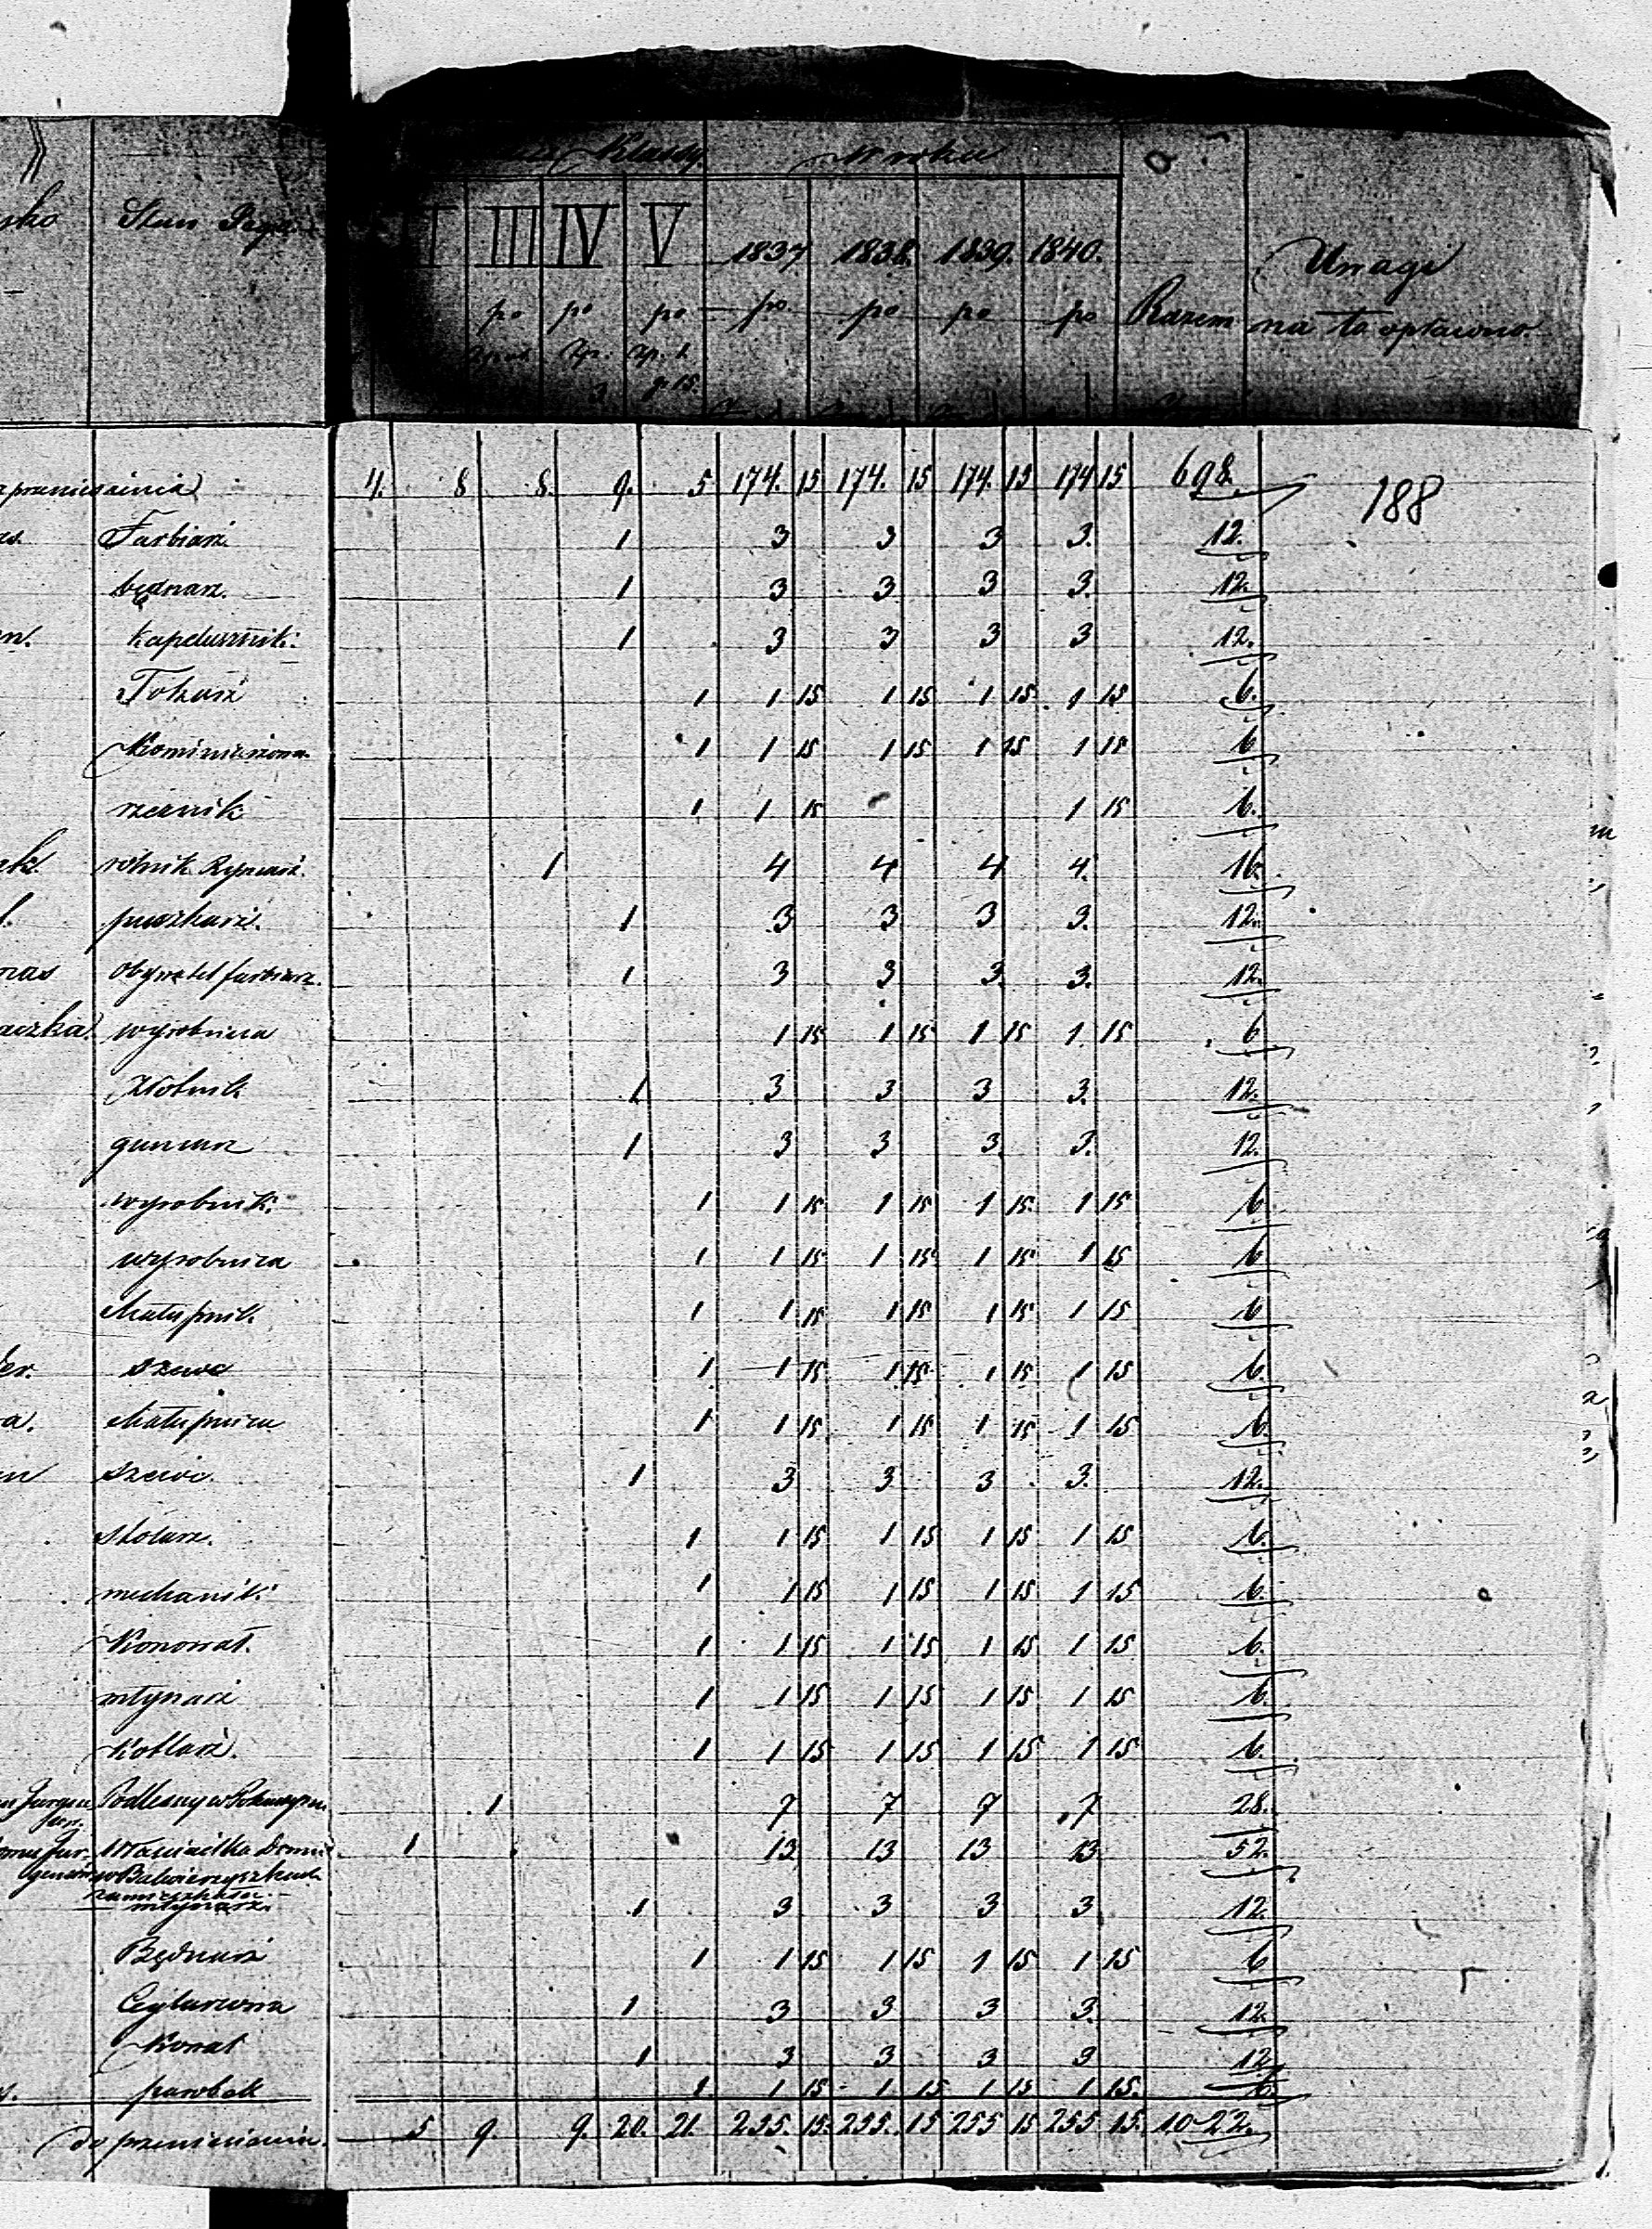 Klassy. W roku
sko Stan
III IV V 1837 1838. 1839. 1840. Uwagi
po po po po po po po Razem na to opłacono
Zp. Zp. 1
3 g. 15.
4. 8 8. 9. 5 174. 15 174. 15 174. 15 174 15 698. 188
Farbiarz. 1 3 3 3 3. 12.
bednarz. 1 3 3 3 3. 12.
Kapelusznik. 1 3 3 3 3 12.
Tokarz 1 1 15 1 15 1 15 1 15 6.
1 1 15 1 15 1 15 1 15 6
rzeznik 1 1 15 1 15 6.
rolnik Rymarz. 1 4 4 4 4. 16.
puszkarz. 1 3 3 3 3. 12.
nas obywatel farbiarz. 1 3 3 3. 3. 12.
aczka. wyrobnica 1 15 1 15 1 15 1. 15 6
Złotnik 1 3 3 3 3. 12.
garncarz 1 3 3 3. 3. 12.
wyrobnik. 1 1 15 1 15 1 15 1 15 6
wyrobnica 1 1 15 1 15 1 15 1 15 6
chałupnik. 1 1 15 1 15 1 15 1 15 6
der. szewc 1 1 15 1 15 1 15 1 15 6.
a. chałupnica 1 1 15 1 15 1 15 1 15 6.
szewc. 1 3 3 3 3. 12.
stolarz. 1 1 15 1 15 1 15 1 15 6.
mechanik. 1 1 15 1 15 1 15 1 15 6.
Konował. 1 1 15 1 15 1 15 1 15 6.
młynarz 1 1 15 1 15 1 15 1 15 6.
Kotlarz. 1 1 15 1 15 1 15 1 15 6.
Podleśny w 1 7 7 7 7 28.
Właścicielka 1 13 13 13 13. 52.
młynarz. 1 3 3 3 3 12.
Bednarz 1 1 15 1 15 1 15 1 15 6
1 3 3 3 3. 12.
Kowal 1 3 3 3 3 12
parobek 1 1 15 1 15 1 15 1 15. 6.
do przeniesienia. 5 9. 9. 20. 21. 255. 15. 255. 15 255 15 255 15. 1022.